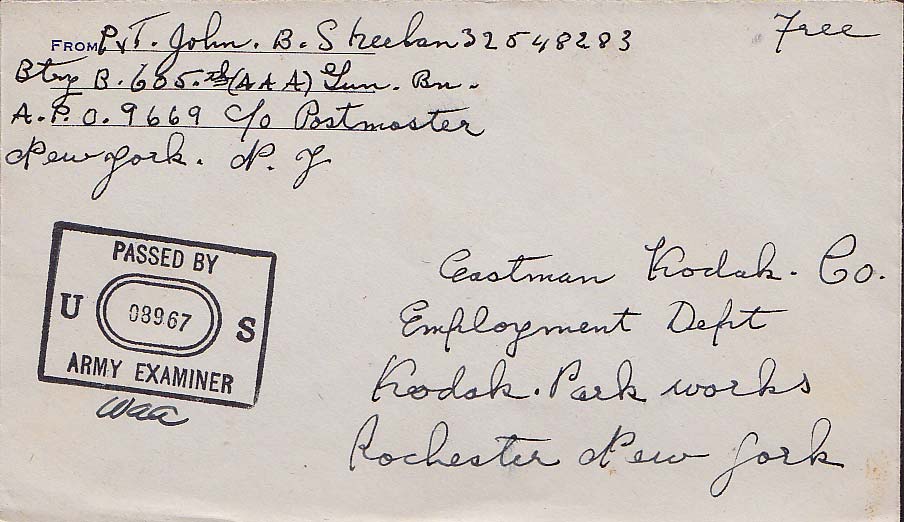 FROM PvT. John. B. Streeban 32548283
Free
Btry B. 605.th (AAA) Gun. Bn.
A.P.O. 9669 c/o Postmaster
New York. N. Y
PASSED BY
U 08967 S
ARMY EXAMINER
Eastman Kodak. Co.
Employment Dept
Kodak. Park works
Rochester New York